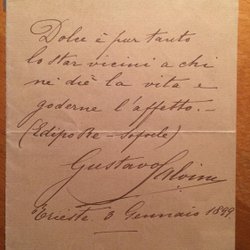 Dolce è pur tanto
lo star vicini a chi
ne diè la vita e
goderne l'affetto. —
(Edipo Re — Sofocle)
Gustavo Salvini
Trieste 3 Gennaio 1899